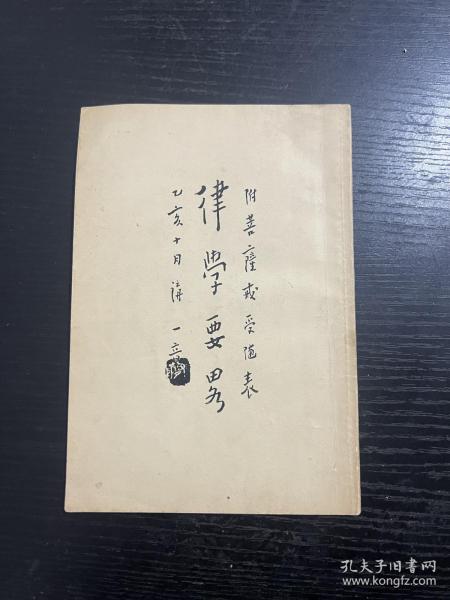 附菩薩戒受隨表
律學要略
乙亥十月講 一音
孔夫子旧书网
www.kongfz.com